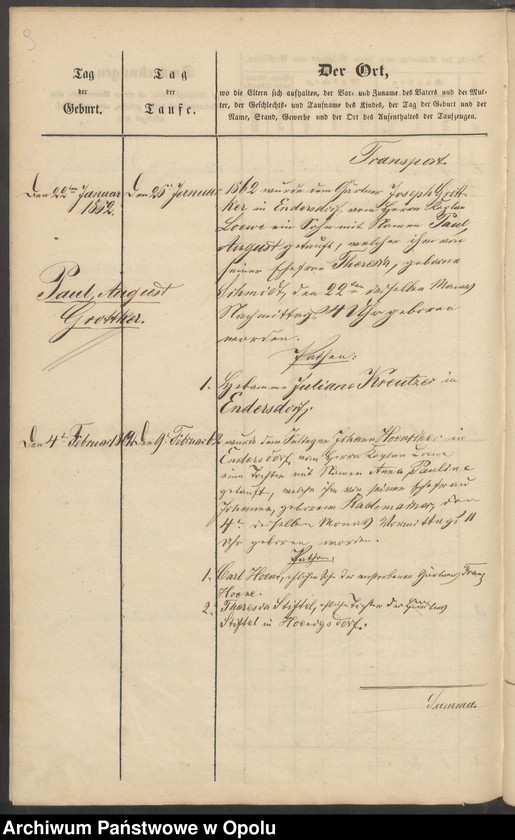 Tag
der
Geburt.
Tag
der
Taufe.
Der Ort,
wo die Eltern sich aufhalten, der Vor- und Zuname des Vaters und der Mut-
ter, der Geschlechts- und Taufname des Kindes, der Tag der Geburt und der
Name, Stand, Gewerbe und der Ort des Aufenthaltes der Taufzeugen.
Transport.
Den 22ten Januar
1862.
Den 26 Januar
1862 wurde dem Gärtner Joseph Grott-
ker in Endersdorf, vom Herrn Kaplan
Loewe ein Sohn mit Namen Paul,
August getauft, welcher ihm von
seiner Ehefrau Theresia, geborne
Schmidt, den 22ten desselben Monats
Nachmittags 4 Uhr geboren
worden.
Paul, August
Grottker.
Pathen:
1. Hebamme Juliane Kreutzer in
Endersdorf.
Den 4t Februar
Den 9t Februar
wurde dem Johann
in
Endersdorf, vom Herrn Kaplan Loewe
eine Tochter mit Namen Anna, Pauline
getauft, welche ihm von seiner Ehefrau
Johanna, geborene Rademacher, den
4t desselben Monats Vormittags 11
Uhr geboren worden.
Pathen,
1. Carl Hoene, Sohn des verstorbenen Gärtners Franz
Hoene.
2. Theresia Stiftel, Tochter des
Stiftel in Hoenigsdorf.
Summa.
Archiwum Państwowe w Opolu